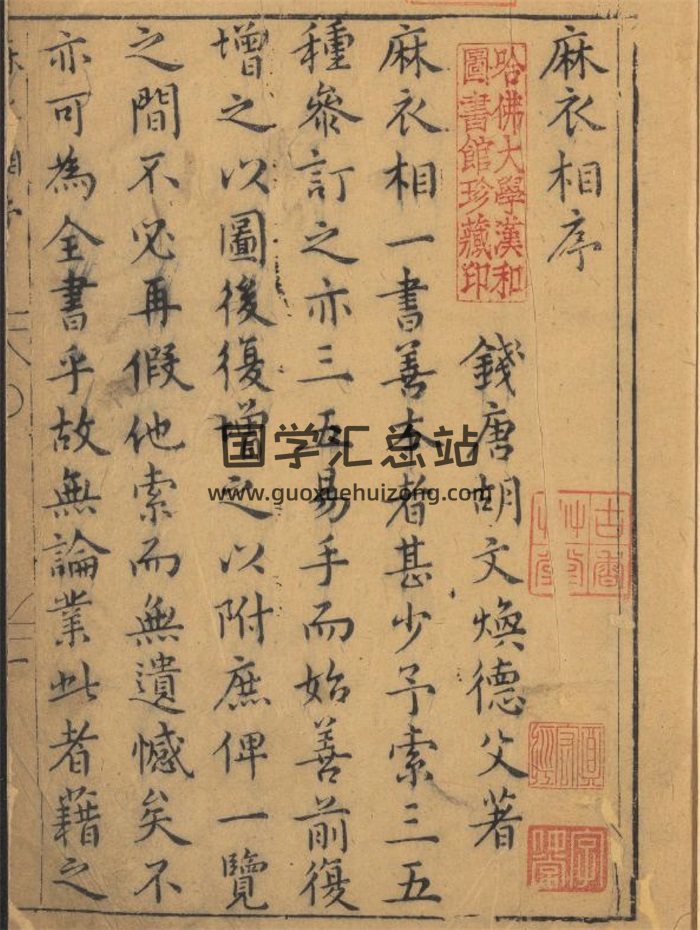 麻衣相序
哈佛大學漢和
圖書館珍藏印
錢唐胡文煥德父著
麻衣相一書善本者甚少予索三五
種參訂之亦三五易手而始善前復
增之以圖後復增之以附庶俾一覽
之間不必再假他索而無遺憾矣不
亦可為全書乎故無論業此者藉之
国学汇总站
www.guoxuehuizong.com